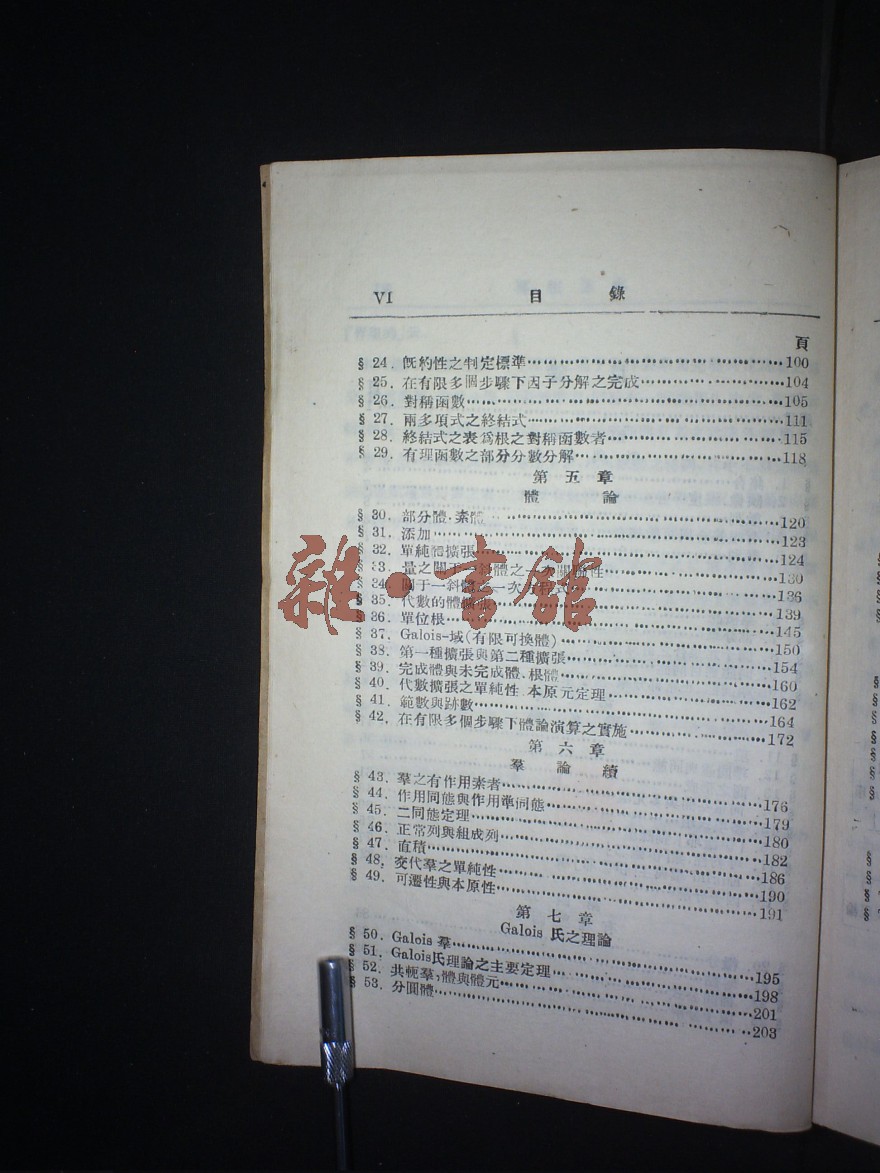 VI 目 錄
頁
§ 24. 旣約性之判定標準 100
§ 25. 在有限多個步驟下因子分解之完成 104
§ 26. 對稱函數 105
§ 27. 兩多項式之終結式 111
§ 28. 終結式之表爲根之對稱函數者 115
§ 29. 有理函數之部分分數分解 118
第 五 章
體 論
§ 30. 部分體.素體 120
§ 31. 添加 123
§ 32. 單純體擴張 124
§ 33. 量之關于一斜體之一次 性 130
§ 34. 關于一斜體之一次方程式 136
§ 35. 代數的體擴張 139
§ 36. 單位根 145
§ 37. Galois-域(有限可換體) 150
§ 38. 第一種擴張與第二種擴張 154
§ 39. 完成體與未完成體.根體 160
§ 40. 代數擴張之單純性.本原元定理 162
§ 41. 範數與跡數 164
§ 42. 在有限多個步驟下體論演算之實施 172
第 六 章
羣 論 續
§ 43. 羣之有作用素者 176
§ 44. 作用同態與作用準同態 179
§ 45. 二同態定理 180
§ 46. 正常列與組成列 182
§ 47. 直積 186
§ 48. 交代羣之單純性 190
§ 49. 可遷性與本原性 191
第 七 章
Galois 氏之理論
§ 50. Galois 羣 195
§ 51. Galois氏理論之主要定理 198
§ 52. 共軛羣,體與體元 201
§ 53. 分圓體 203
雜·書館